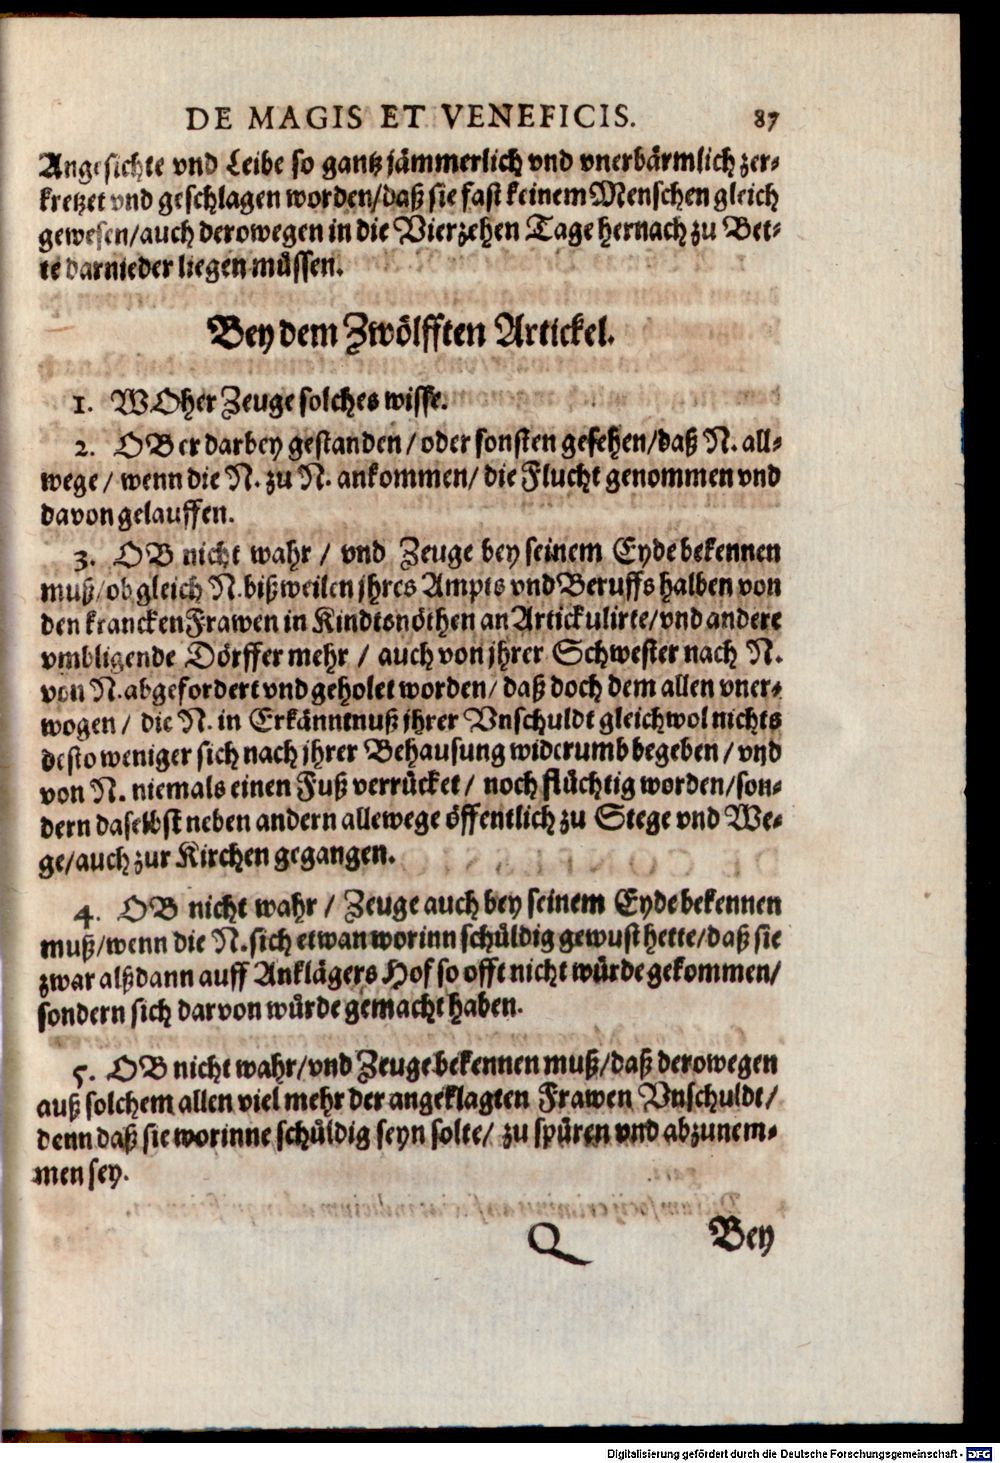 DE MAGIS ET VENEFICIS. 87
Angesichte vnd Leibe so gantz jämmerlich vnd vnerbärmlich zer-
kretzet vnd geschlagen worden/daß sie fast keinem Menschen gleich
gewesen/auch derowegen in die Vierzehen Tage hernach zu Bet-
te darnieder liegen müssen.
Bey dem Zwölfften Artickel.
1. WOher Zeuge solches wisse.
2. OB er darbey gestanden/ oder sonsten gesehen/daß N. all-
wege/ wenn die N. zu N. ankommen/ die Flucht genommen vnd
davon gelauffen.
3. OB nicht wahr/ vnd Zeuge bey seinem Eyde bekennen
muß/ob gleich N. bißweilen jhres Ampts vnd Beruffs halben von
den krancken Frawen in Kindtsnöthen an Artickulirte/vnd andere
vmbligende Dörffer mehr/ auch von jhrer Schwester nach N.
von N. abgefordert vnd geholet worden/ daß doch dem allen vner-
wogen/ die N. in Erkänntnuß jhrer Vnschuldt gleichwol nichts
desto weniger sich nach jhrer Behausung widerumb begeben/ vnd
von N. niemals einen Fuß verrücket/ noch flüchtig worden/son-
dern daselbst neben andern allewege öffentlich zu Stege vnd We-
ge/auch zur Kirchen gegangen.
4. OB nicht wahr/ Zeuge auch bey seinem Eyde bekennen
muß/wenn die N. sich etwan worinn schüldig gewust hette/daß sie
zwar alßdann auff Anklägers Hof so offt nicht würde gekommen/
sondern sich darvon würde gemacht haben.
5. OB nicht wahr/vnd Zeuge bekennen muß/daß derowegen
auß solchem allen viel mehr der angeklagten Frawen Vnschuldt/
denn daß sie worinne schüldig seyn solte/ zu spüren vnd abzunem-
men sey.
Q Bey
Digitalisierung gefördert durch die Deutsche Forschungsgemeinschaft - DFG